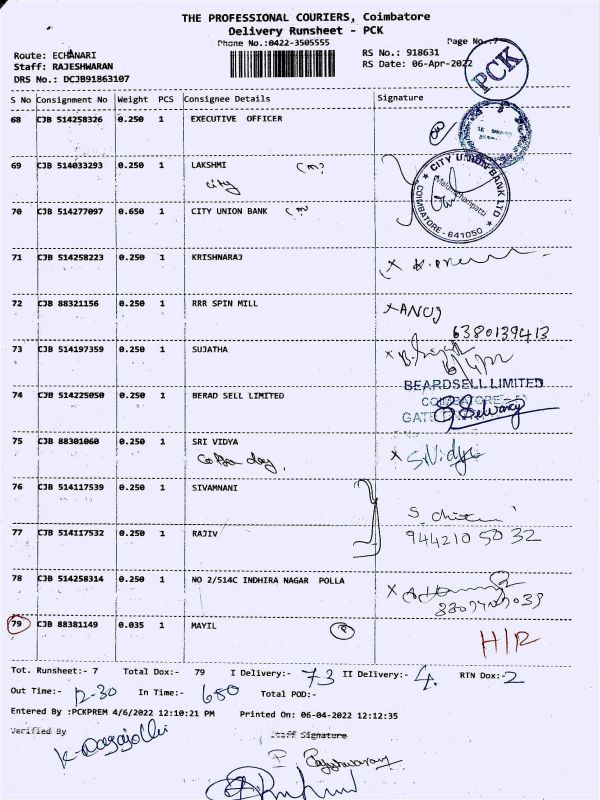 THE PROFESSIONAL COURIERS, Coimbatore
Delivery Runsheet - PCK
Phone No.:0422-3505555
Page No.:7
PCK
Route: ECHANARI
RS No.: 918631
Staff: RAJESHWARAN
RS Date: 06-Apr-2022
DRS No.: DCJB91863107
S No Consignment No Weight PCS Consignee Details Signature
68 CJB 514258326 0.250 1 EXECUTIVE OFFICER
69 CJB 514033293 0.250 1 LAKSHMI
city
CITY UNION BANK LTD
COIMBATORE - 641050
70 CJB 514277097 0.650 1 CITY UNION BANK
71 CJB 514258223 0.250 1 KRISHNARAJ
72 CJB 88321156 0.250 1 RRR SPIN MILL
x ANUJ
6380139413
73 CJB 514197359 0.250 1 SUJATHA
6/4/22
74 CJB 514225050 0.250 1 BERAD SELL LIMITED
BEARDSELL LIMITED
COIMBATORE
GATE
75 CJB 88301060 0.250 1 SRI VIDYA
x S.Vidya
76 CJB 514117539 0.250 1 SIVAMNANI
77 CJB 514117532 0.250 1 RAJIV
9442105032
78 CJB 514258314 0.250 1 NO 2/514C INDHIRA NAGAR POLLA
79 CJB 88381149 0.035 1 MAYIL
H/R
Tot. Runsheet:- 7 Total Dox:- 79 I Delivery:- 73 II Delivery:- 4. RTN Dox:- 2
Out Time:- 12-30 In Time:- 680 Total POD:-
Entered By :PCKPREM 4/6/2022 12:10:21 PM Printed On: 06-04-2022 12:12:35
Verified By
Staff Signature